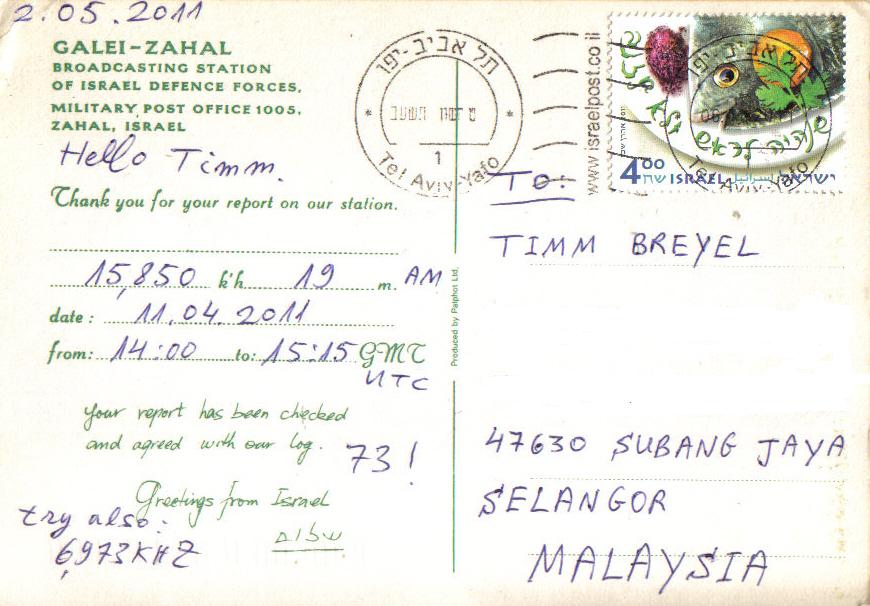 2.05.2011
GALEI-ZAHAL
BROADCASTING STATION
OF ISRAEL DEFENCE FORCES,
MILITARY POST OFFICE 1005,
ZAHAL, ISRAEL
Hello Timm.
Thank you for your report on our station.
15,850 k'h 19 m. AM
date: 11.04.2011
from: 14:00 to: 15:15 GMT
UTC
Your report has been checked
and agreed with our log.
73!
Greetings from Israel
שלום
try also:
6,973 KHZ
Produced by Palphot Ltd.
תל אביב-יפו
1
Tel Aviv-Yafo
www.israelpost.co.il
שנהיה לראש ולא לזנב
4.00
ISRAEL
ישראל
תל אביב-יפו
Tel Aviv-Yafo
TO:
TIMM BREYEL
47630 SUBANG JAYA
SELANGOR
MALAYSIA